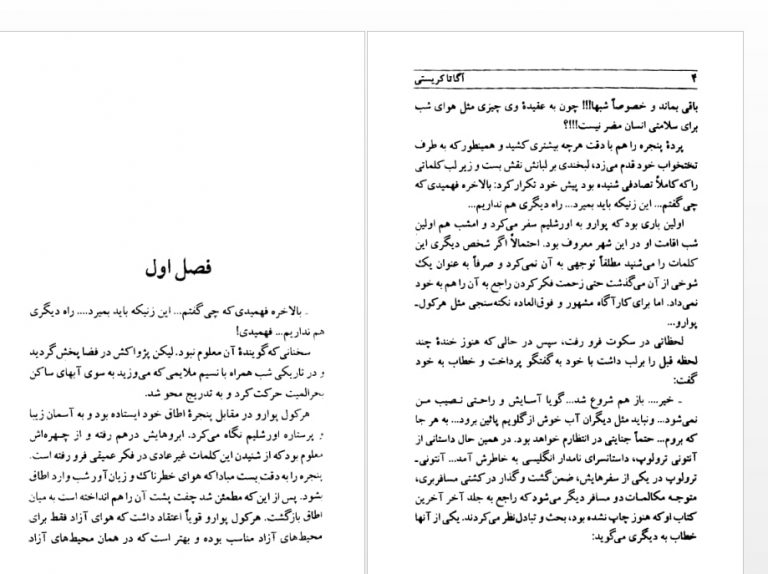 فصل اول
ـ بالاخره فهمیدی که چی گفتم... این زنیکه باید بمیرد.... راه دیگری
هم نداریم... فهمیدی!
سخنانی که گویندهٔ آن معلوم نبود. لیکن پژواکش در فضا پخش گردید
و در تاریکی شب همراه با نسیم ملایمی که می‌وزید به سوی آبهای ساکن
بحرالمیت حرکت کرد و به تدریج محو شد.
هرکول پوارو در مقابل پنجرهٔ اطاق خود ایستاده بود و به آسمان زیبا
و پرستاره اورشلیم نگاه می‌کرد. ابروهایش درهم رفته و از چهره‌اش
معلوم بود که از شنیدن این کلمات غیرعادی در فکر عمیقی فرو رفته است.
پنجره را به دقت بست مبادا که هوای خطرناک و زیان‌آور شب وارد اطاق
بشود. پس از این که مطمئن شد چفت پشت آن را هم انداخته است به میان
اطاق بازگشت. هرکول پوارو قویاً اعتقاد داشت که هوای آزاد فقط برای
محیط‌های آزاد مناسب بوده و بهتر است که در همان محیط‌های آزاد
۴ آگاتا کریستی
باقی بماند و خصوصاً شبها!!! چون به عقیدهٔ وی چیزی مثل هوای شب
برای سلامتی انسان مضر نیست!!!؟
پردهٔ پنجره را هم با دقت هرچه بیشتری کشید و همینطور که به طرف
تختخواب خود قدم می‌زد، لبخندی بر لبانش نقش بست و زیر لب کلماتی
را که کاملاً تصادفی شنیده بود پیش خود تکرار کرد: بالاخره فهمیدی که
چی گفتم... این زنیکه باید بمیرد... راه دیگری هم نداریم...
اولین باری بود که پوارو به اورشلیم سفر می‌کرد و امشب هم اولین
شب اقامت او در این شهر معروف بود. احتمالاً اگر شخص دیگری این
کلمات را می‌شنید مطلقاً توجهی به آن نمی‌کرد و صرفاً به عنوان یک
شوخی از آن می‌گذشت حتی زحمت فکر کردن راجع به آن را هم به خود
نمی‌داد. اما برای کارآگاه مشهور و فوق‌العاده نکته‌سنجی مثل هرکول‌ـ
پوارو...
لحظاتی در سکوت فرو رفت، سپس در حالی که هنوز خندهٔ چند
لحظه قبل را برلب داشت با خود به گفتگو پرداخت و خطاب به خود
گفت:
ـ خیر.... باز هم شروع شد...گویا آسایش و راحتی نصیب من
نمی‌شود... ونباید مثل دیگران آب خوش ازگلویم پائین برود... به هر جا
که بروم... حتماً جنایتی در انتظارم خواهد بود. در همین حال داستانی از
آنتونی ترولوپ، داستانسرای نامدار انگلیسی به خاطرش آمد... آنتونی‌ـ
ترولوپ در یکی از سفرهایش، ضمن گشت و گذار در کشتی مسافربری،
متوجه مکالمات دو مسافر دیگر می‌شود که راجع به جلد آخر آخرین
کتاب او که هنوز چاپ نشده بود، بحث و تبادل‌نظر می‌کردند. یکی از آنها
خطاب به دیگری می‌گوید: